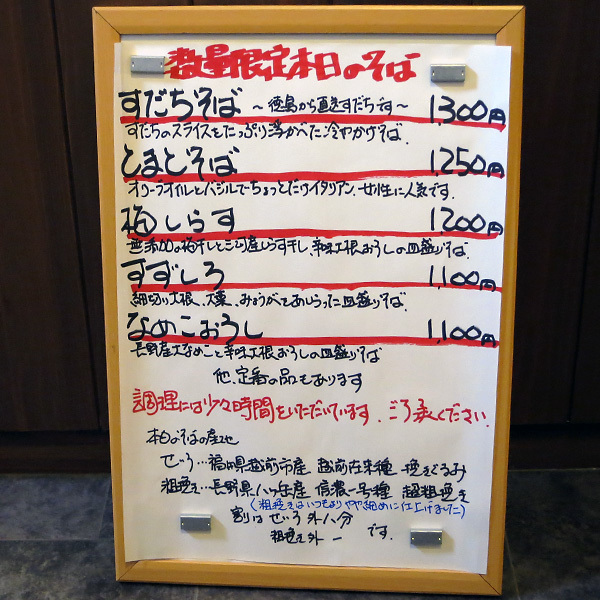 数量限定本日のそば
すだちそば ～徳島から直送すだちです～ 1,300円
すだちのスライスをたっぷり浮かべた冷やかけそば.
とまとそば 1,250円
オリーブオイルとバジルでちょっとだけイタリアン.女性に人気です.
梅しらす 1,200円
無添加の梅干しと 産しらす干し、辛味大根おろしの皿盛りそば.
すずしろ 1,100円
細切り大根、大葉、みょうがであしらった皿盛りそば.
なめこおろし 1,100円
長野産大なめこと辛味大根おろしの皿盛りそば
他、定番の品もあります
調理には少々時間をいただいています.ご了承ください.
本日のそばの産地
せいろ…福井県越前市産 越前在来種 挽きぐるみ
粗挽き…長野県八ヶ岳産 信濃一号種 超粗挽き
(粗挽きはいつもよりやや細めに仕上げました)
割は せいろ 外八分
粗挽き外一 です.